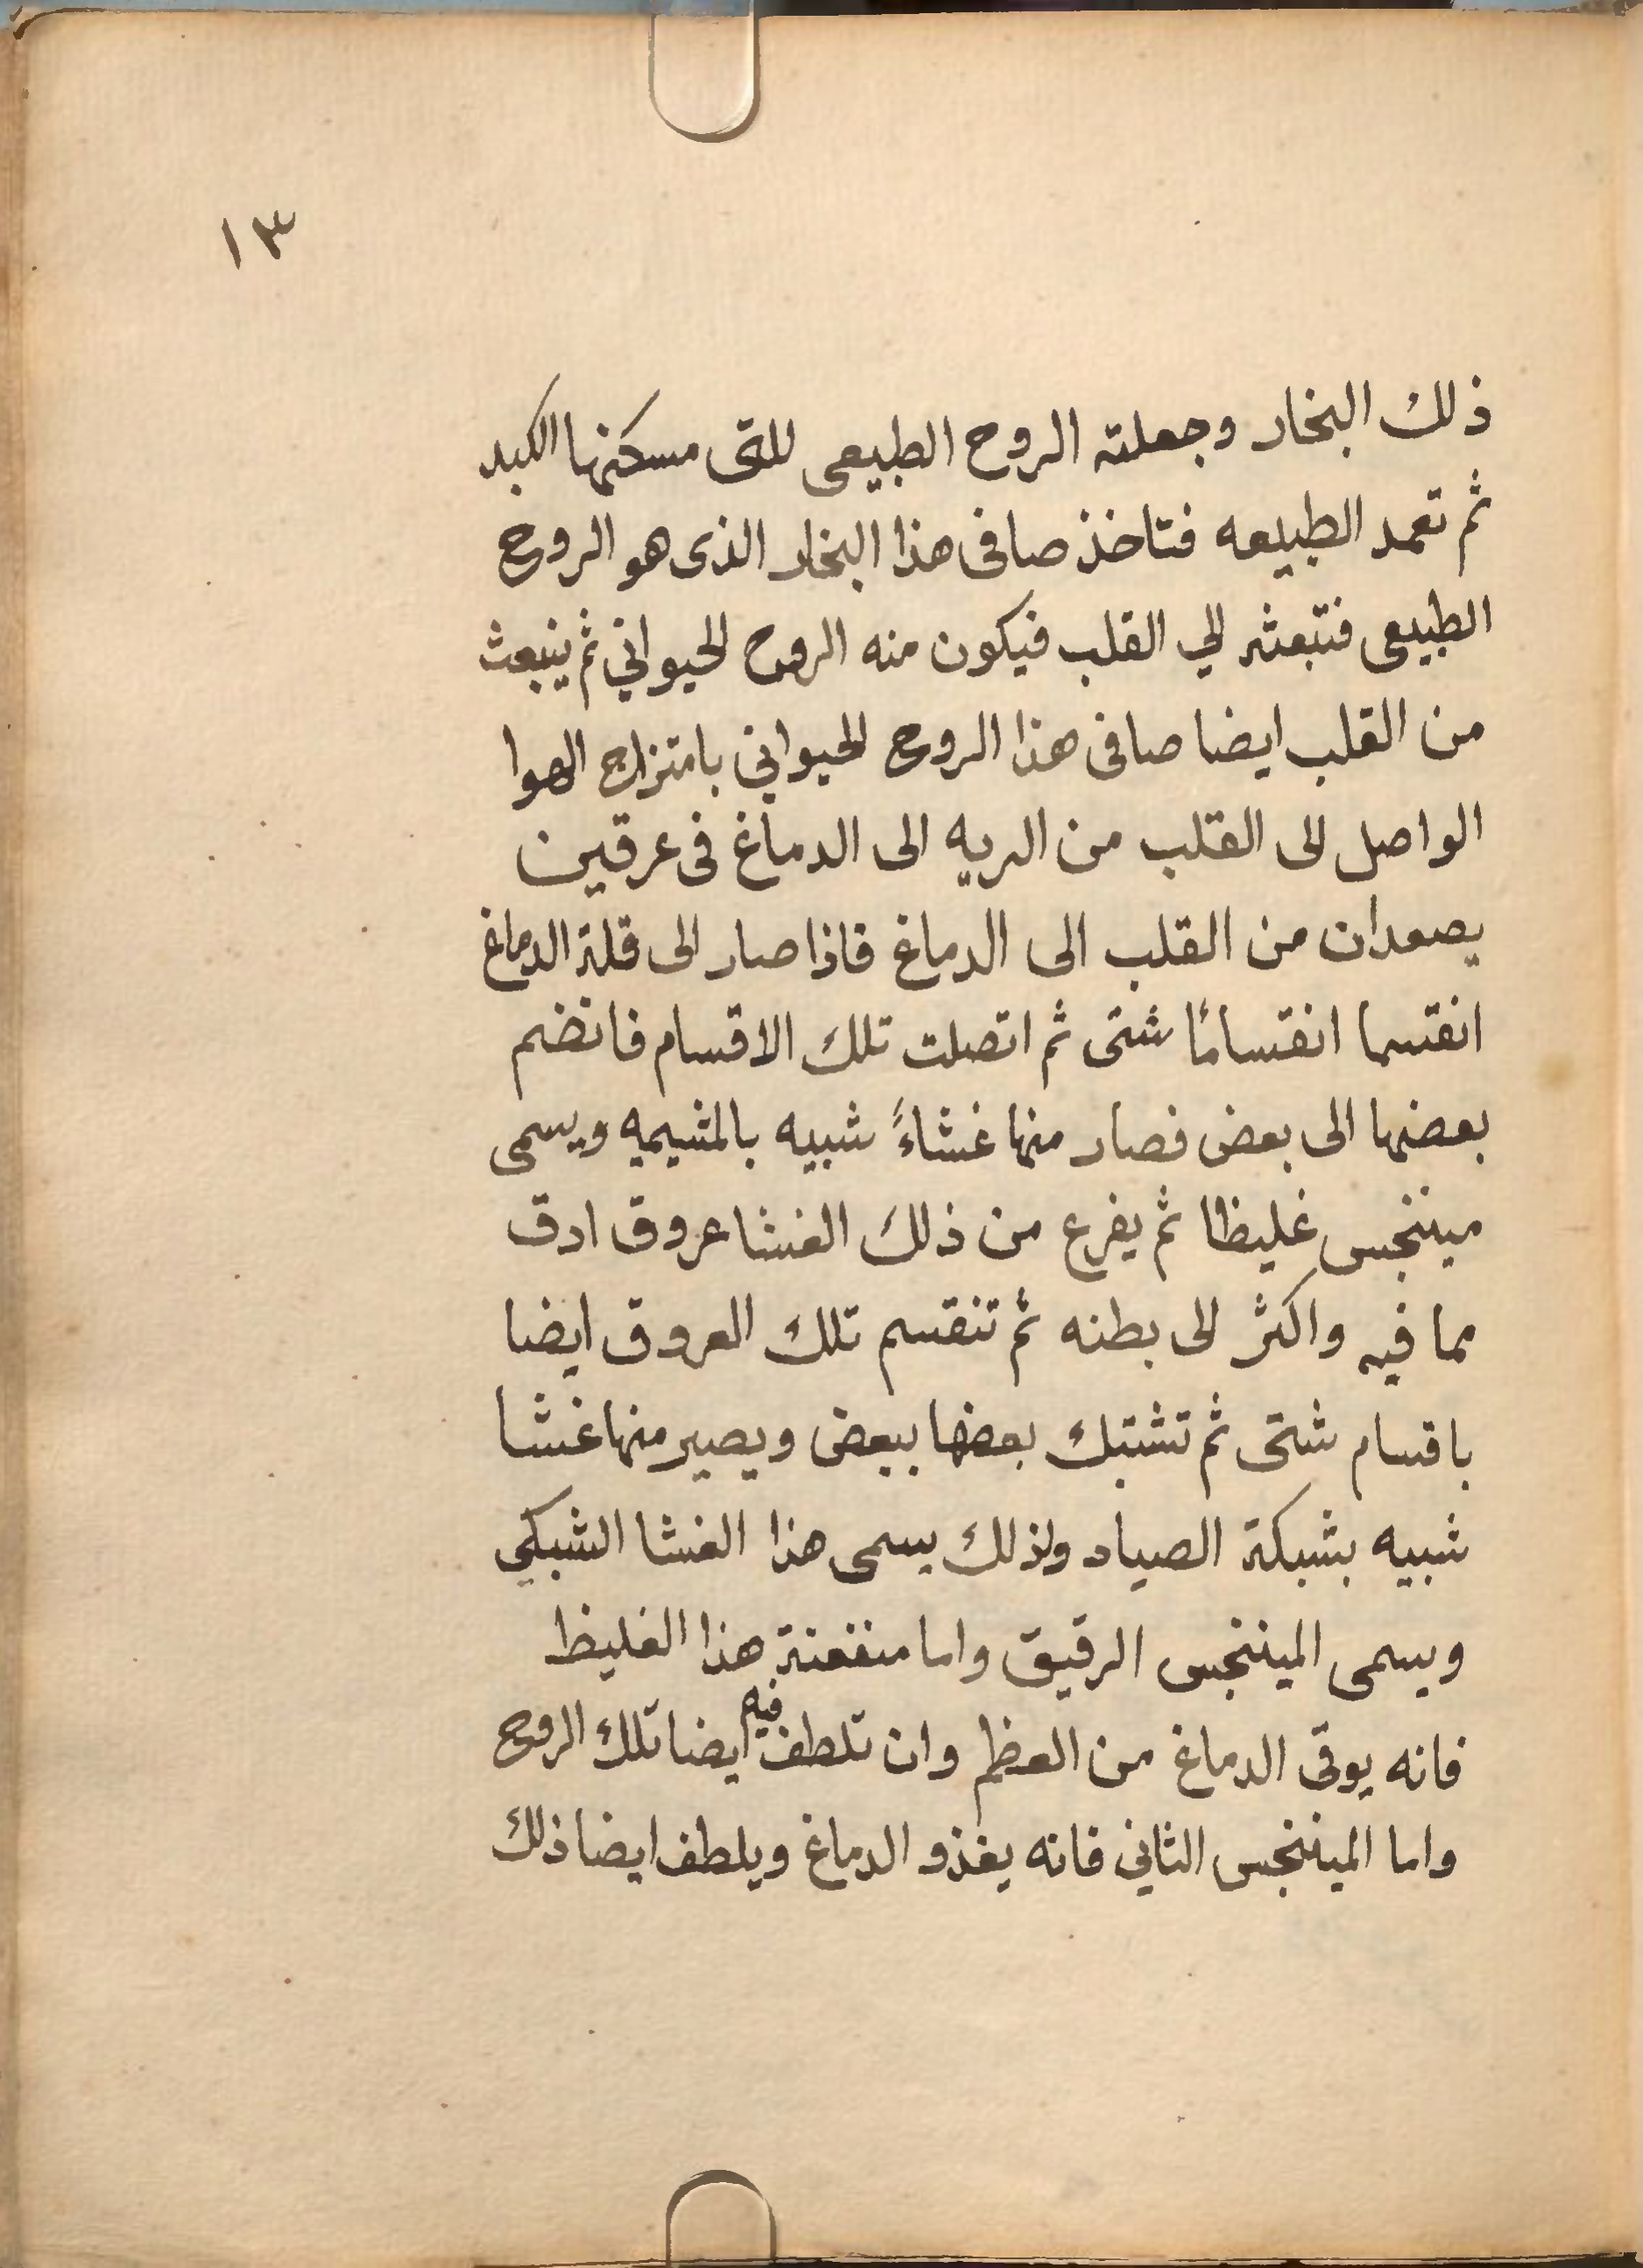 ١٣
ذلك البخار وجعلته الروح الطبيعى للتى مسكنها الكبد
ثم تعمد الطبيعه فتاخذ صافى هذا البخار الذى هو الروح
الطبيعى فتبعثه الي القلب فيكون منه الروح الحيواني ثم ينبعث
من القلب ايضا صافى هذا الروح الحيواني بامتزاج الهوا
الواصل الى القلب من الريه الى الدماغ فى عرقين
يصعدان من القلب الى الدماغ فاذا صار الى قلة الدماغ
انقتسما انقتسامًا شتى ثم اتصلت تلك الاقسام فانضم
بعضها الى بعض فصار منها غشاءً شبيه بالمشيميه ويسمى
ميننجس غليظا ثم يفرع من ذلك الغشا عروق ادق
مما فيه واكثر الى بطنه ثم تنقسم تلك العروق ايضا
باقسام شتى ثم تشتبك بعضها ببعض ويصير منها غشا
شبيه بشبكة الصياد ولذلك يسمى هذا الغشا الشبكي
ويسمى الميننجس الرقيق واما منفعة هذا الغليظ
فانه يوقى الدماغ من العظم وان تلطف فيه ايضا تلك الروح
واما الميننجس الثاني فانه يغذو الدماغ ويلطف ايضا ذلك